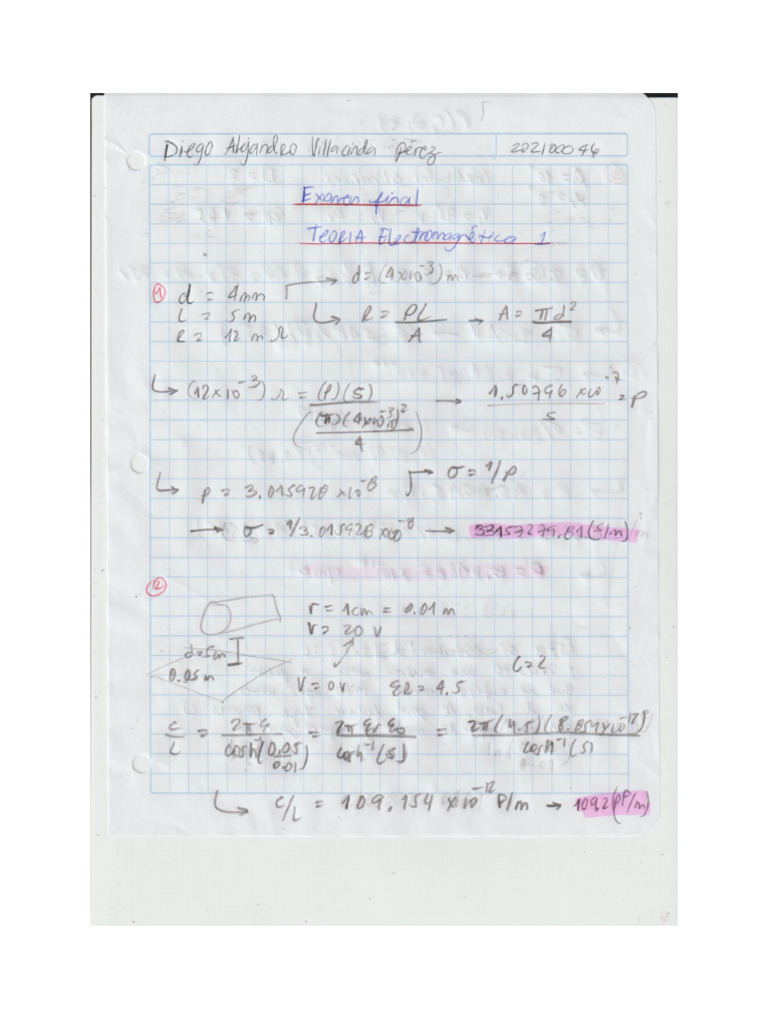 Diego Alejandro Villacinda Pérez 202100046
Examen final
TEORIA Electromagnética 1
① d = 4mm → d = (4x10^-3) m
L = 5m ↳ R = ρL/A → A = πd²/4
R = 12 m Ω
↳ (12x10^-3) Ω = (ρ)(5)/((π)(4x10^-3)²/4) → 1.50796 x10^-7/5 = ρ
↳ ρ = 3.015928 x10^-8 → σ = 1/ρ
→ σ = 1/3.015928 x10^-8 → 33157279.81 (S/m)
②
r = 1cm = 0.01 m
V = 20 V
d=5cm
0.05 m
C=?
V = 0v εR = 4.5
C/L = 2πε/cosh^-1(0.05/0.01) = 2π εr ε0/cosh^-1(5) = 2π(4.5)(8.854x10^-12)/cosh^-1(5)
↳ C/L = 109.154 x10^-12 F/m → 109.2 (pF/m)